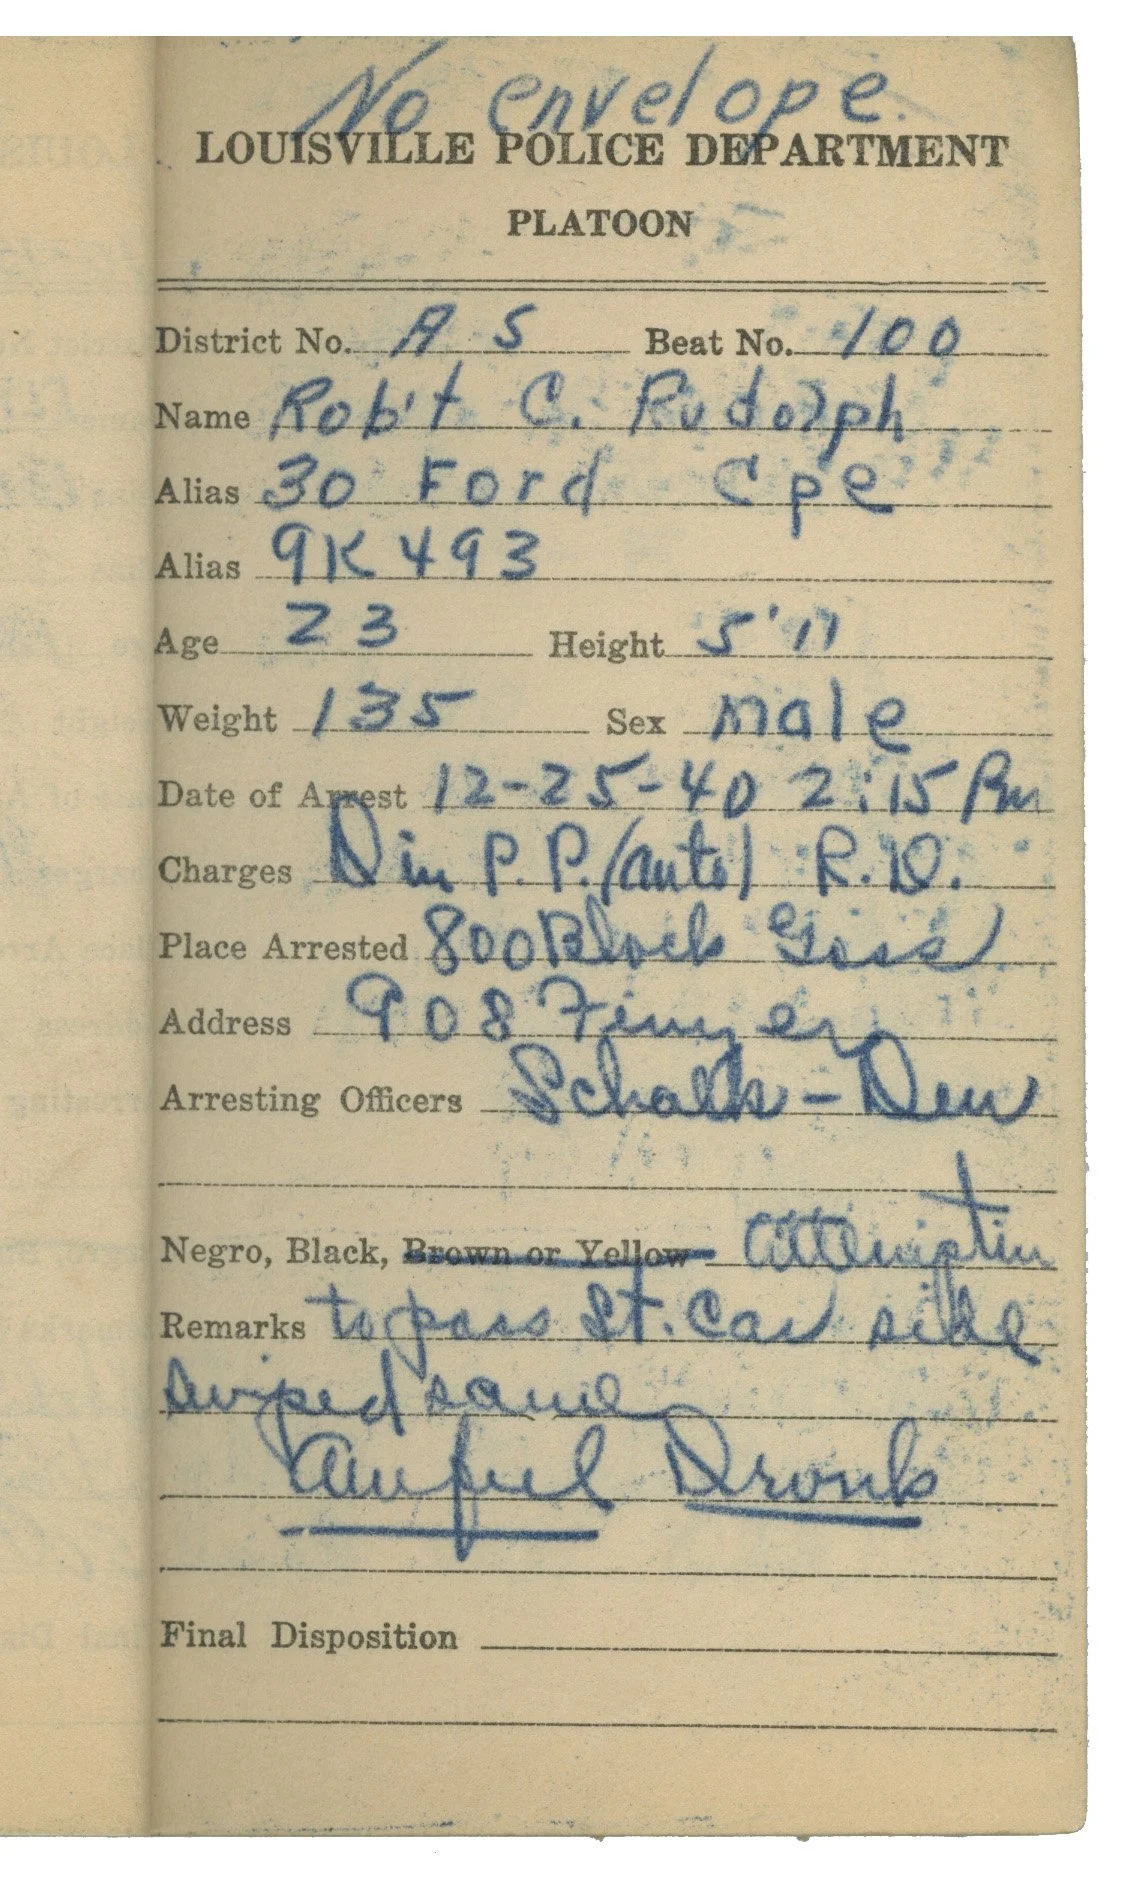 No envelope.
LOUISVILLE POLICE DEPARTMENT
PLATOON
District No. A S Beat No. 100
Name Rob't C. Rudolph
Alias 30 Ford Cpe
Alias 9K493
Age 23 Height 5'11
Weight 135 Sex male
Date of Arrest 12-25-40 2:15 Pm
Charges D in P.P. (auto) R.D.
Place Arrested 800 Block Goss
Address 908
Arresting Officers
Negro, Black, Brown or Yellow attemptin
Remarks to pass St. Car side
swiped same
Awful Dronk
Final Disposition